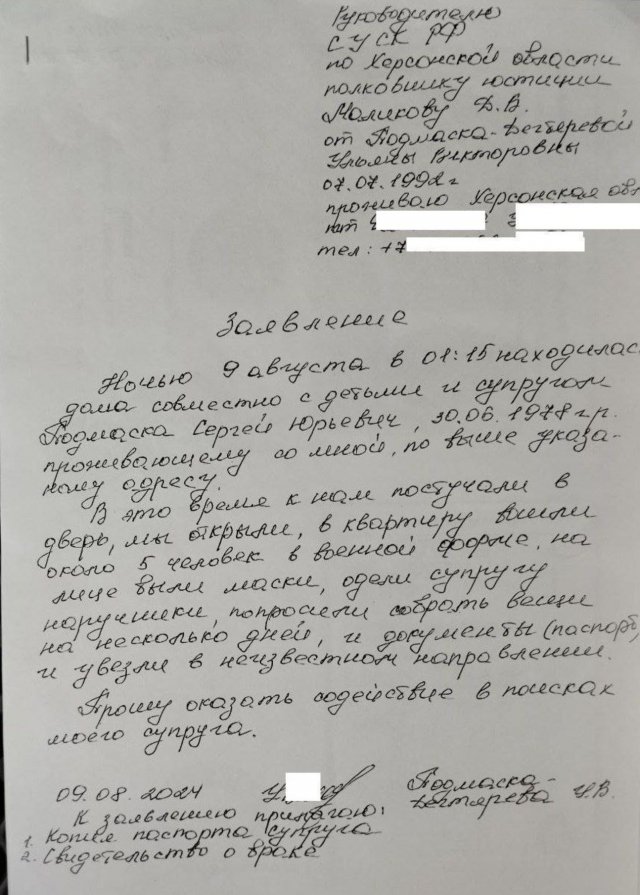 Руководителю
СУСК РФ
по Херсонской области
полковнику юстиции
Маликову Д.В.
от Подмаска-Дегтеревой
Ульяны Викторовны
07.07.1992 г
проживаю Херсонская обл
пгт
тел: +7
Заявление
Ночью 9 августа в 01:15 находилась
дома совместно с детьми и супругом
Подмаска Сергей Юрьевич, 30.06.1978 г.р.
проживающему со мной, по выше указа-
ному адресу.
В это время к нам постучали в
дверь, мы открыли, в квартиру вошли
около 5 человек в военной форме, на
лице были маски, одели супругу
наручники, попросили собрать вещи
на несколько дней, и документы (паспорт)
и увезли в неизвестном направлении.
Прошу оказать содействие в поисках
моего супруга.
09.08.2024 Подмаска-
Дегтярева У.В.
К заявлению прилагаю:
1. Копия паспорта супруга
2. Свидетельство о браке